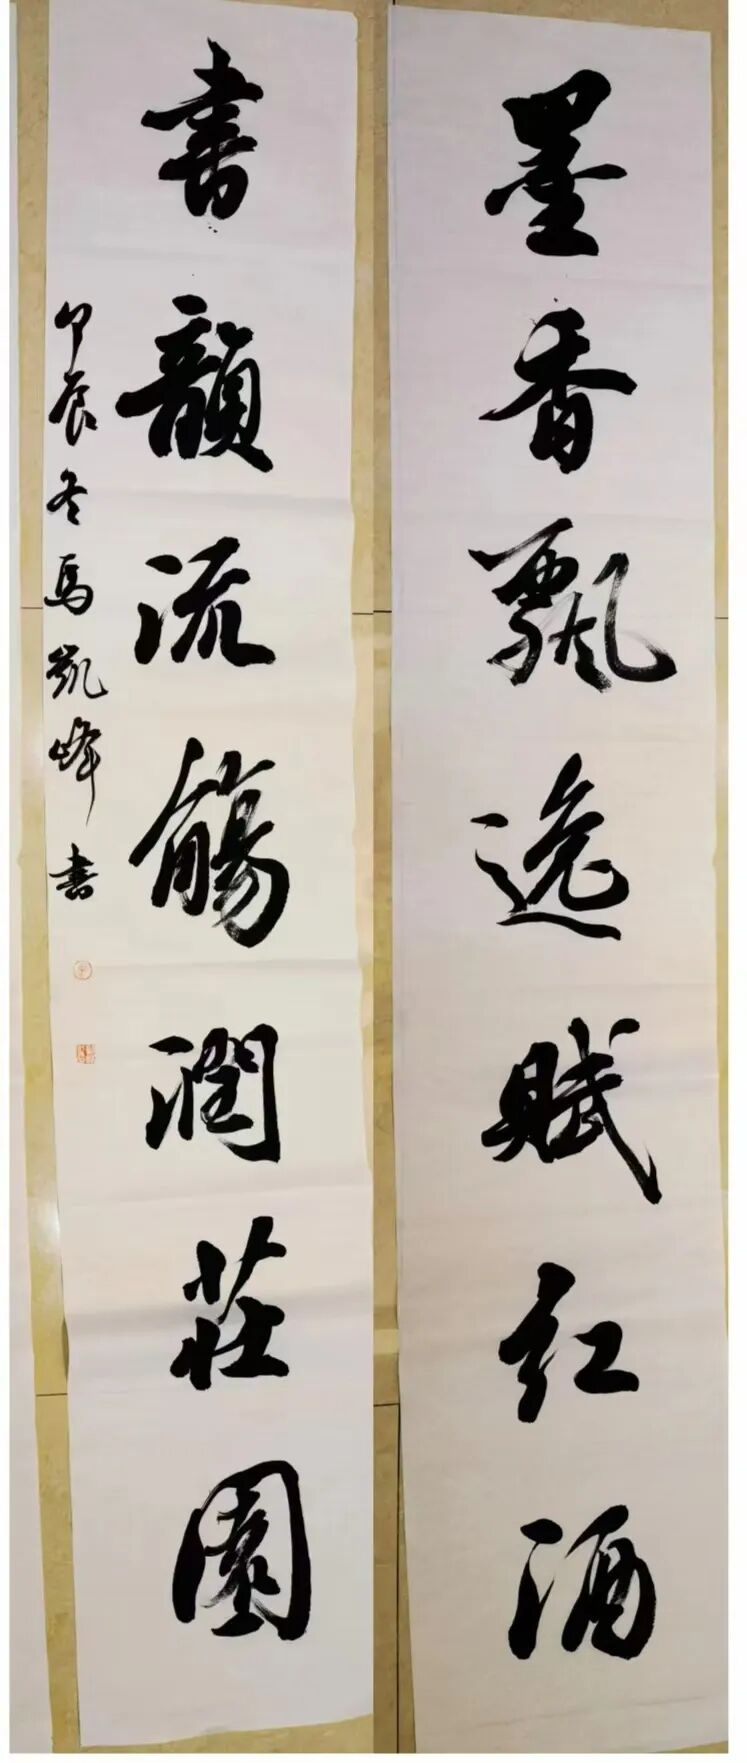 墨香飄逸賦紅酒
書韻流觴潤莊園
甲辰冬馬凱峰書